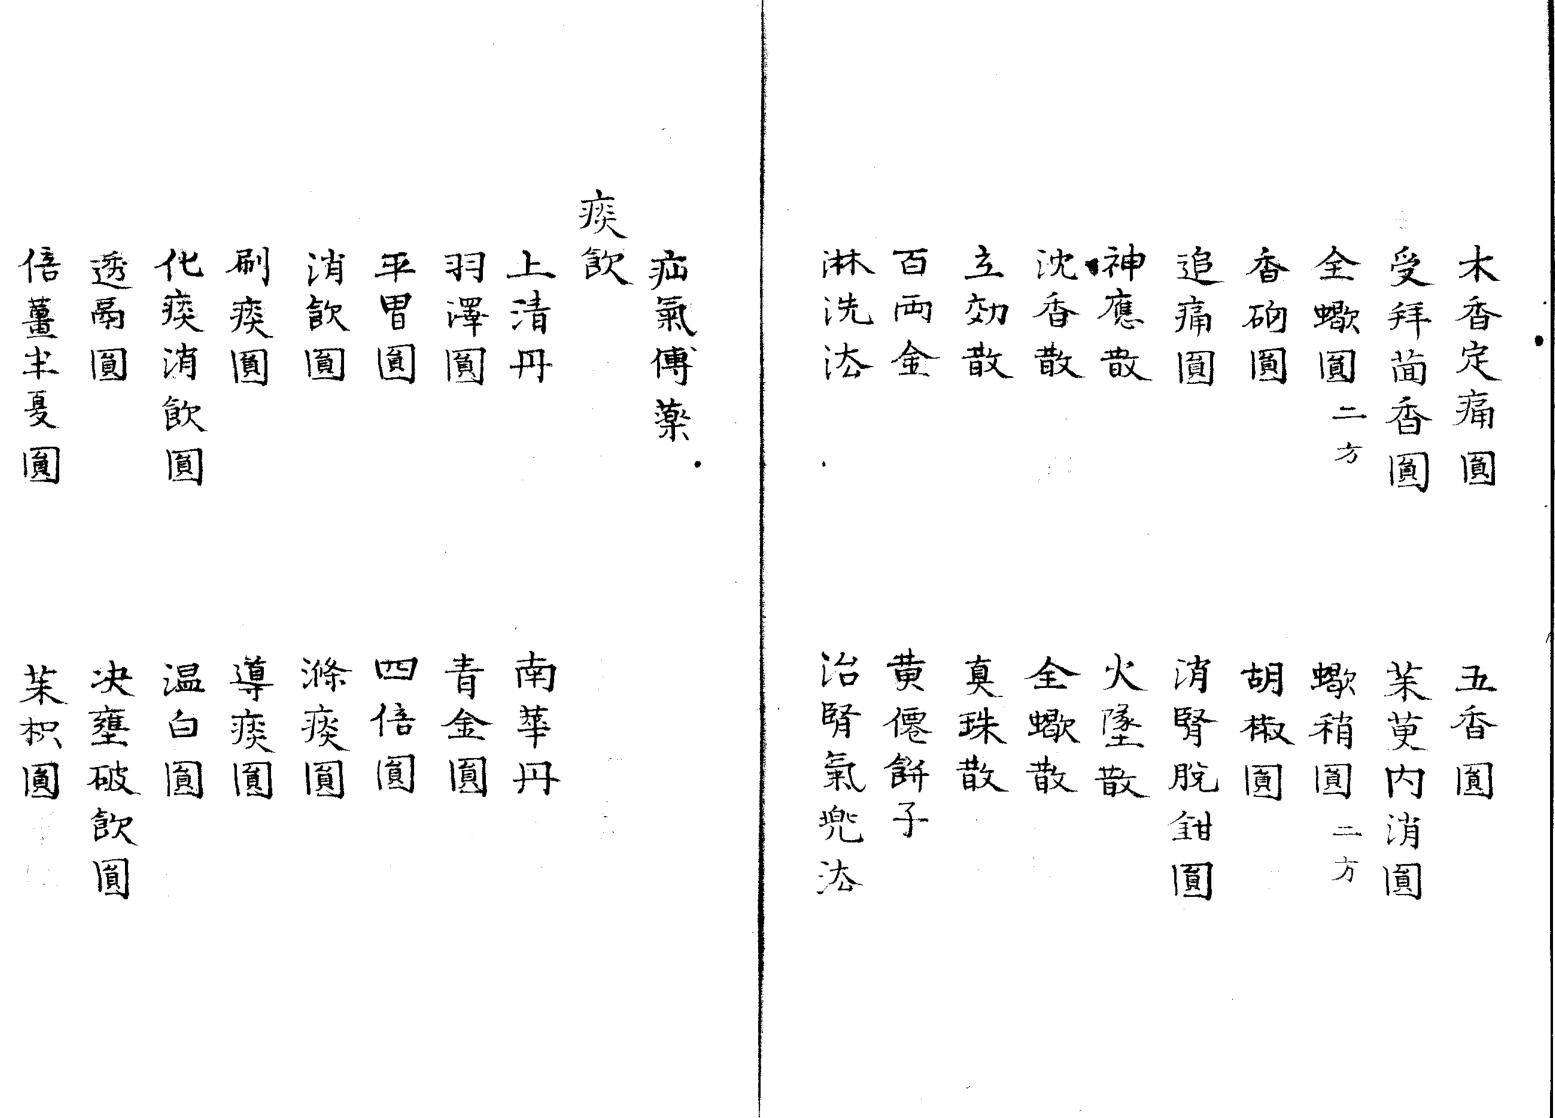 木香定痛圓　五香圓
受拜茴香圓　茱萸内消圓
全蠍圓二方　蠍稍圓二方
香硇圓　胡椒圓
追痛圓　消腎脫鉗圓
神應散　火墜散
沈香散　全蠍散
立効散　真珠散
百両金　黄僊餅子
淋洗法　治腎氣兜法
疝氣傅藥
痰飲
上清丹　南華丹
羽澤圓　青金圓
平胃圓　四倍圓
消飲圓　滌痰圓
刷痰圓　導痰圓
化痰消飲圓　温白圓
透鬲圓　决壅破飲圓
倍薑半夏圓　茱枳圓